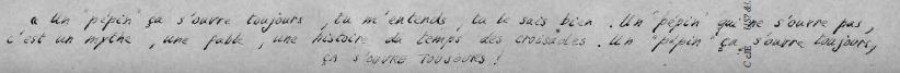 « Un "pépin" ça s'ouvre toujours, tu m'entends, tu le sais bien. Un "pépin" qui ne s'ouvre pas,
c'est un mythe, une fable, une histoire du temps des croisades. Un "pépin" ça s'ouvre toujours,
ça s'OUVRE TOUJOURS !